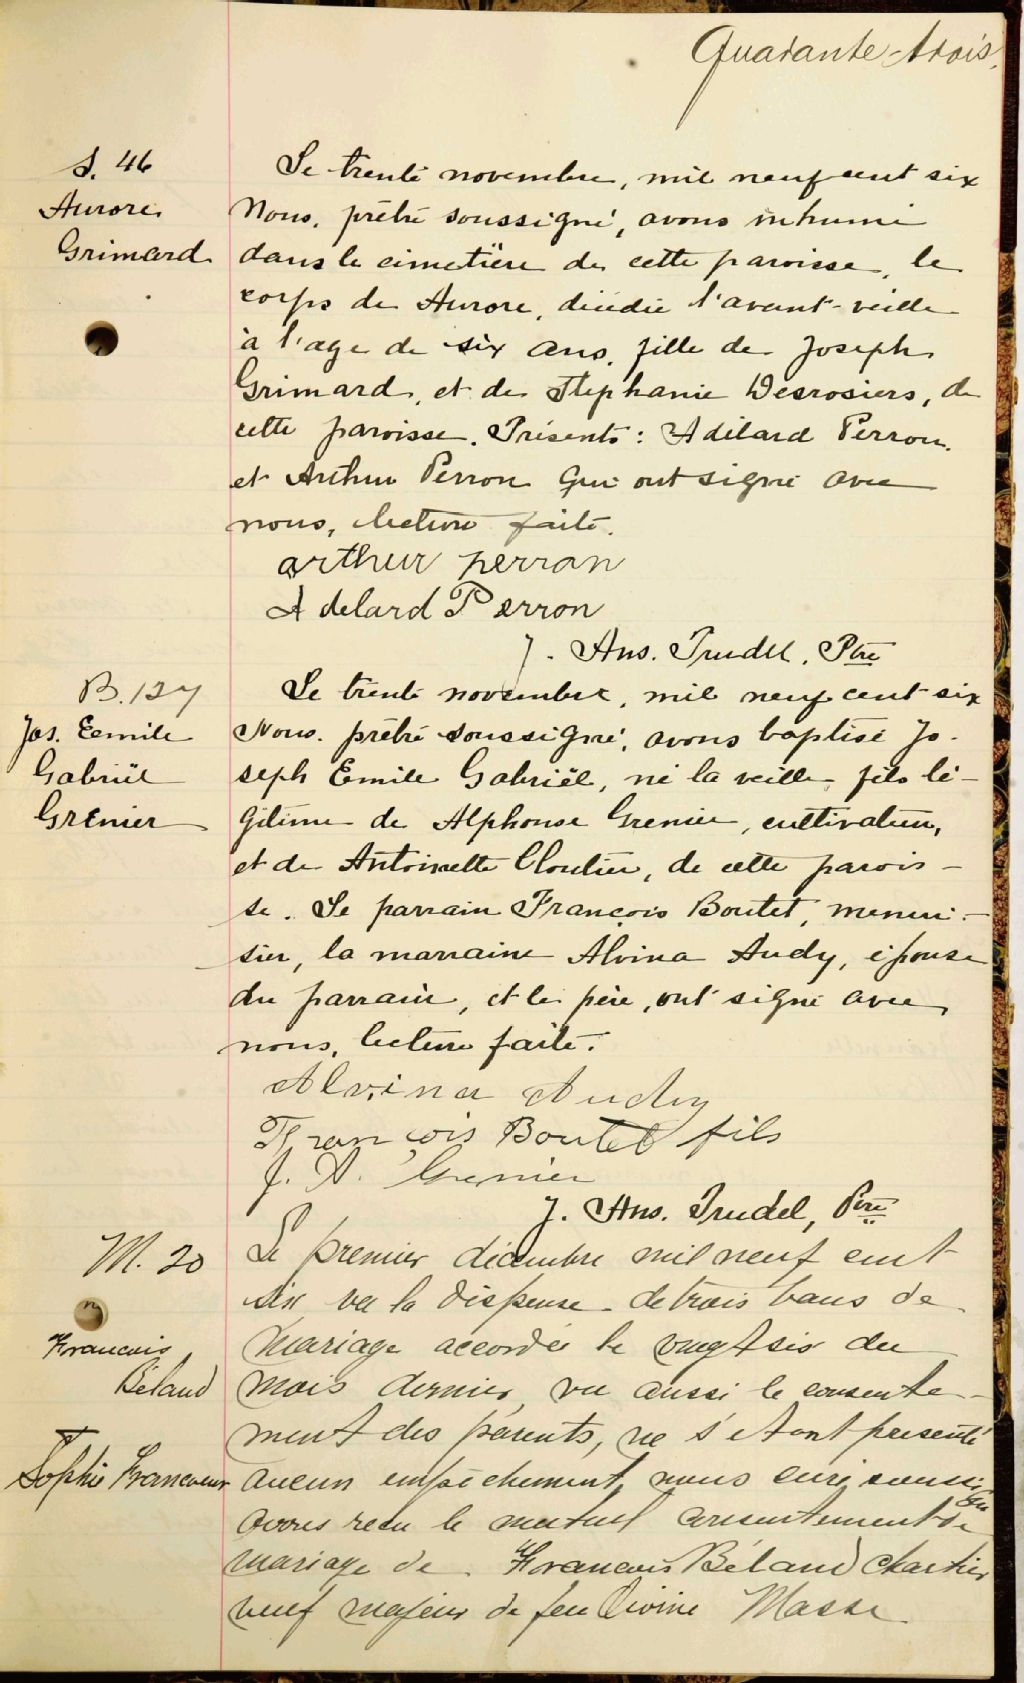 Quarante-trois.
S. 46
Aurore
Grimard
Le trente novembre, mil neuf cent six
Nous, prêtre soussigné, avons inhumé
dans le cimetière de cette paroisse, le
corps de Aurore, décédée l'avant-veille
à l'age de six ans, fille de Joseph
Grimard, et de Stephanie Desrosiers, de
cette paroisse. Présents: Adélard Perron
et Arthur Perron qui ont signé avec
nous, lecture faite.
arthur perron
Adelard Perron
J. Ans. Trudel, Ptre
B. 127
Jos. Eemile
Gabriël
Grenier
Le trente novembre, mil neuf cent six
Nous, prêtre soussigné, avons baptisé Jo-
seph Eemile Gabriël, né la veille, fils lé-
gitime de Alphonse Grenier, cultivateur,
et de Antoinette Cloutier, de cette parois-
se. Le parrain François Boutet, menui-
sier, la marraine Alvina Audy, épouse
du parrain, et le père, ont signé avec
nous, lecture faite.
Alvina Audy
François Boutet fils
J. A. Grenier
J. Ans. Trudel, Ptre
M. 20
Francois
Béland
Sophie Francoeur
Le premier décembre mil neuf cent
six vu la dispense de trois bans de
mariage accordée le vingt six du
mois dernier, vu aussi le consente-
ment des parents, ne s'etant presenté
aucun empêchement, nous curé soussi
gné
avons recu le mutuel consentement de
mariage de Francois Béland charretier
veuf majeur de feu Divine Masse